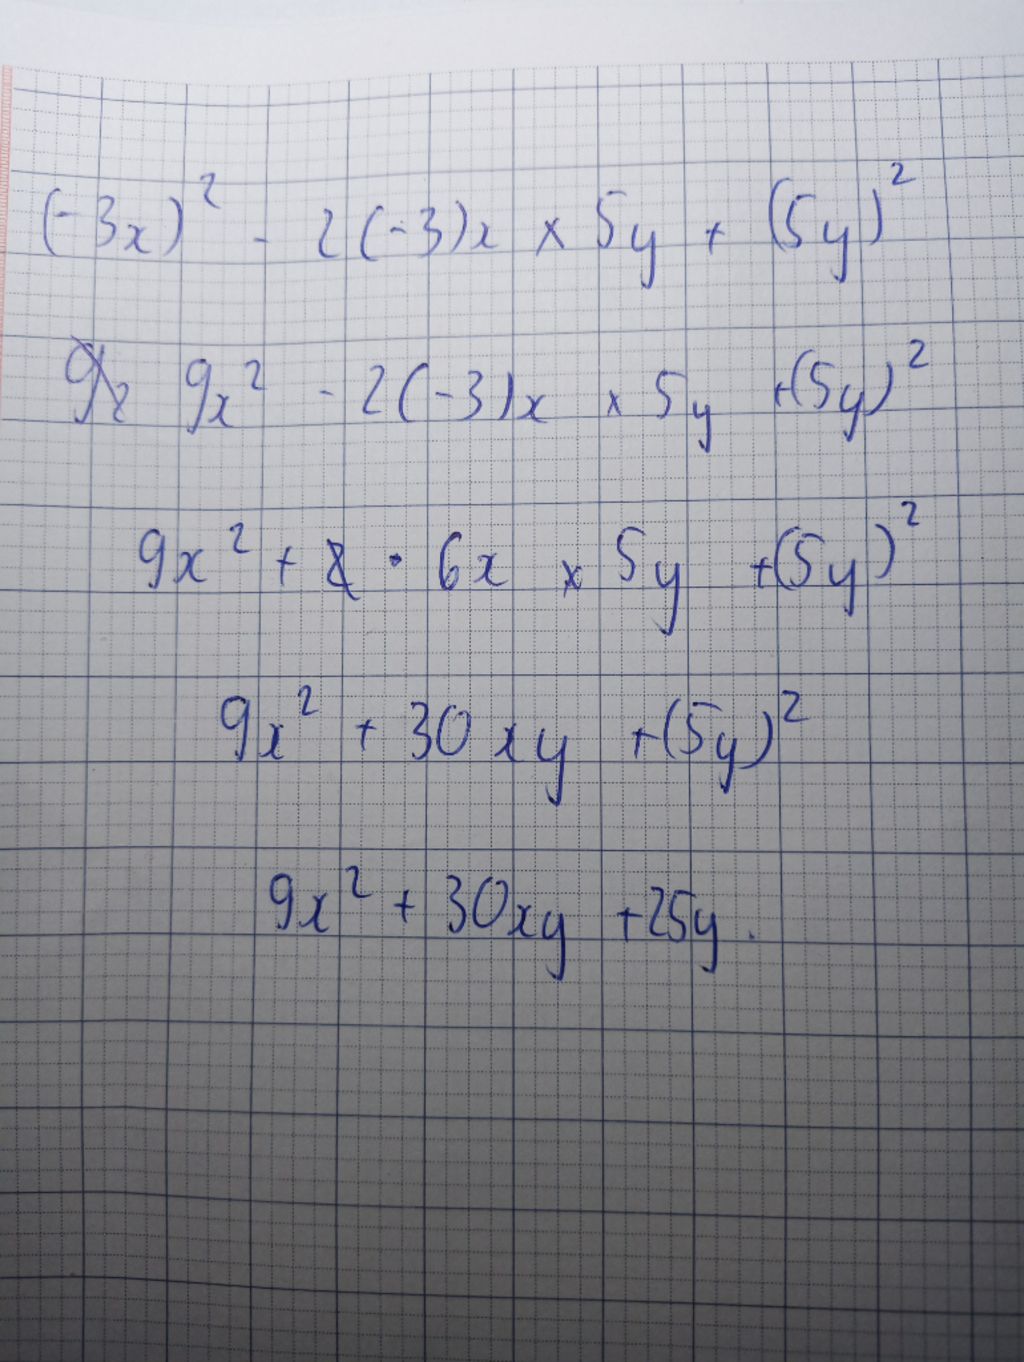 (-3x)² - 2(-3)x × 5y + (5y)²
9x² - 2(-3)x × 5y +(5y)²
9x² + · 6x × 5y +(5y)²
9x² + 30xy +(5y)²
9x² + 30xy +25y.